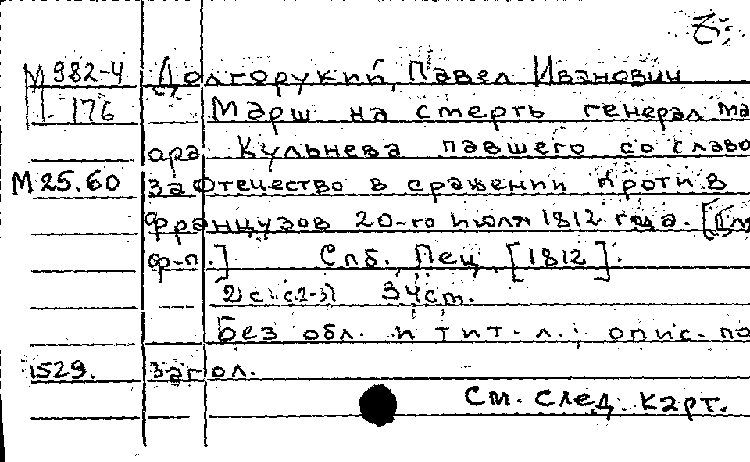 М 982-4 Долгорукий, Павел Иванович
176 Марш на смерть генерал ма
ора Кульнева павшего со славо
М 25.60 за Отечество в сражении против
французов 20-го июля 1812 года. [Дл
ф-п.] Спб., Пец, [1812].
2) с. (с. 2-3) 34 cm.
Без обл. и тит. л.; опис. по
1529. загол.
См. след. карт.